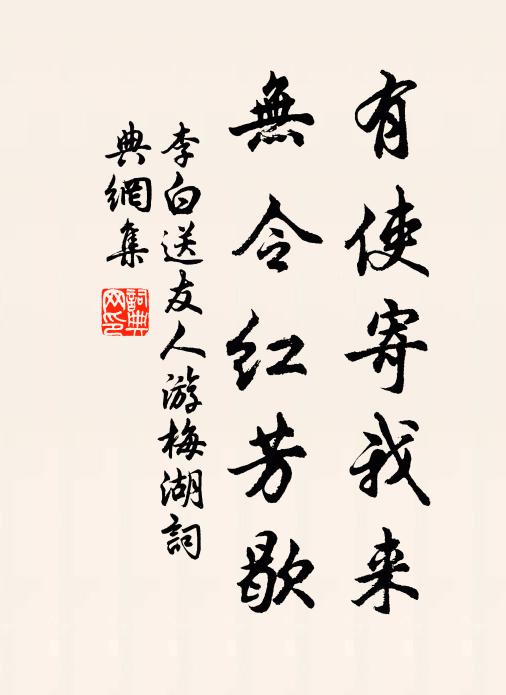 有使寄我来
無令紅芳歇
李白送友人游梅湖詞
典網集
詞典
网印